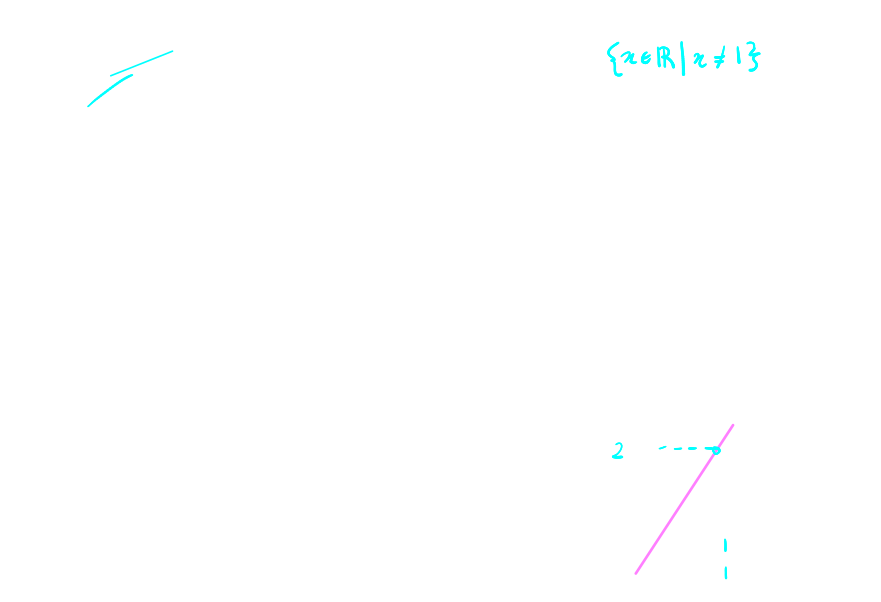 {x∈ℝ|x≠1}
2